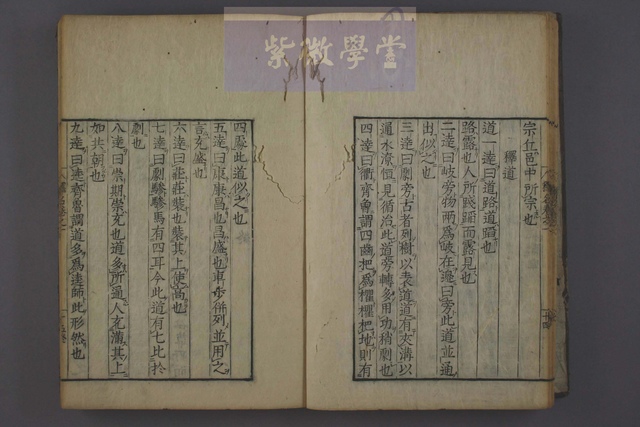 紫微學堂
宗丘邑中所宗也
釋道
道一達曰道路道蹈也
路露也人所踐蹈而露見也
二達曰岐旁物兩為岐在邊曰旁此道並通
出似之也
三達曰劇旁古者列樹以表道道有夾溝以
通水潦恒見修治此道旁轉多用功稍劇也
四達曰衢齊魯謂四齒杷為欋欋杷地則有
四處此道似之也
五達曰康康昌也昌盛也車步併列並用之
言充盛也
六達曰莊莊裝也裝其上使高也
七達曰劇驂驂馬有四耳今此道有七比於
劇也
八達曰崇期崇充也道多所通人充滿其上
如共期也
九達曰逵齊魯謂道多為逵師此形然也